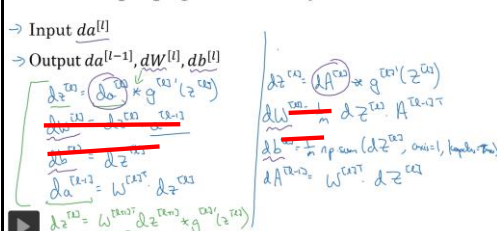 → Input da^[l]
→ Output da^[l-1], dW^[l], db^[l]
dz^[l] = da^[l] * g^[l]'(z^[l])
dW^[l] = dz^[l] a^[l-1]
db^[l] = dz^[l]
da^[l-1] = W^[l]T · dz^[l]
dz^[l] = W^[l+1]T dz^[l+1] * g^[l]'(z^[l])
dz^[l] = dA^[l] * g^[l]'(z^[l])
dW = 1/m dz^[l] · A^[l-1]T
db = 1/m np.sum(dz^[l], axis=1,
dA^[l-1] = W^[l]T · dz^[l]